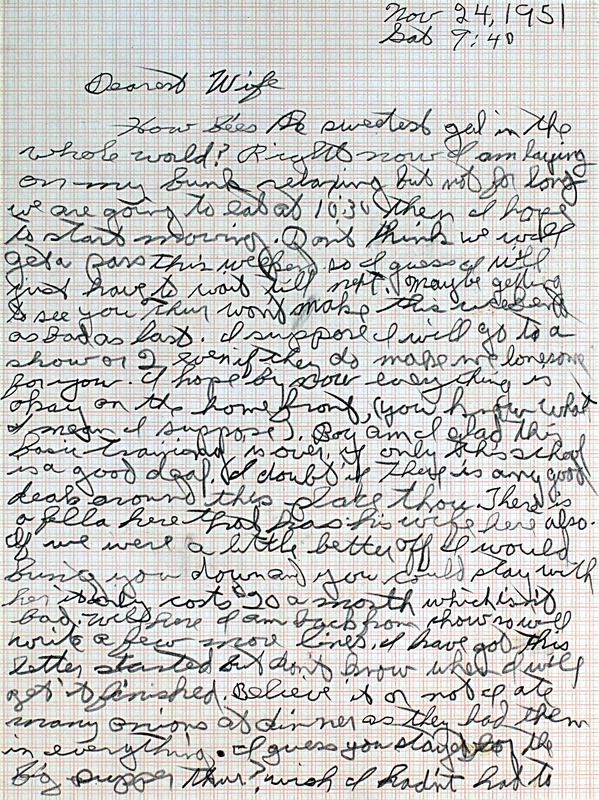 Nov 24, 1951
Sat 9:40
Dearest Wife
How sees the sweetest gal in the
whole world? Right now I am laying
on my bunk relaxing but not for long
we are going to eat at 10:30 then I hope
to start moving. Dont think we will
get a pass this weekend so I guess I will
just have to wait till next. maybe getting
to see you Thur wont make this weekend
as bad as last. I suppose I will go to a
show or 2 even if they do make me lonesome
for you. I hope by now everything is
okay on the home front, (you know what
I mean I suppose). Boy am I glad this
basic training is over, if only this school
is a good deal. I doubt if there is any good
deals around this place thou. There is
a fella here that has his wife here also.
If we were a little better off I would
bring you down and you could stay with
her it only costs $20 a month which isn't
bad. well here I am back from chow so will
write a few more lines. I have got this
letter started but don't know when I will
get it finished. Believe it or not I ate
many onions at dinner as they had them
in everything. I guess you stayed for the
big supper thur? wish I hadn't had to